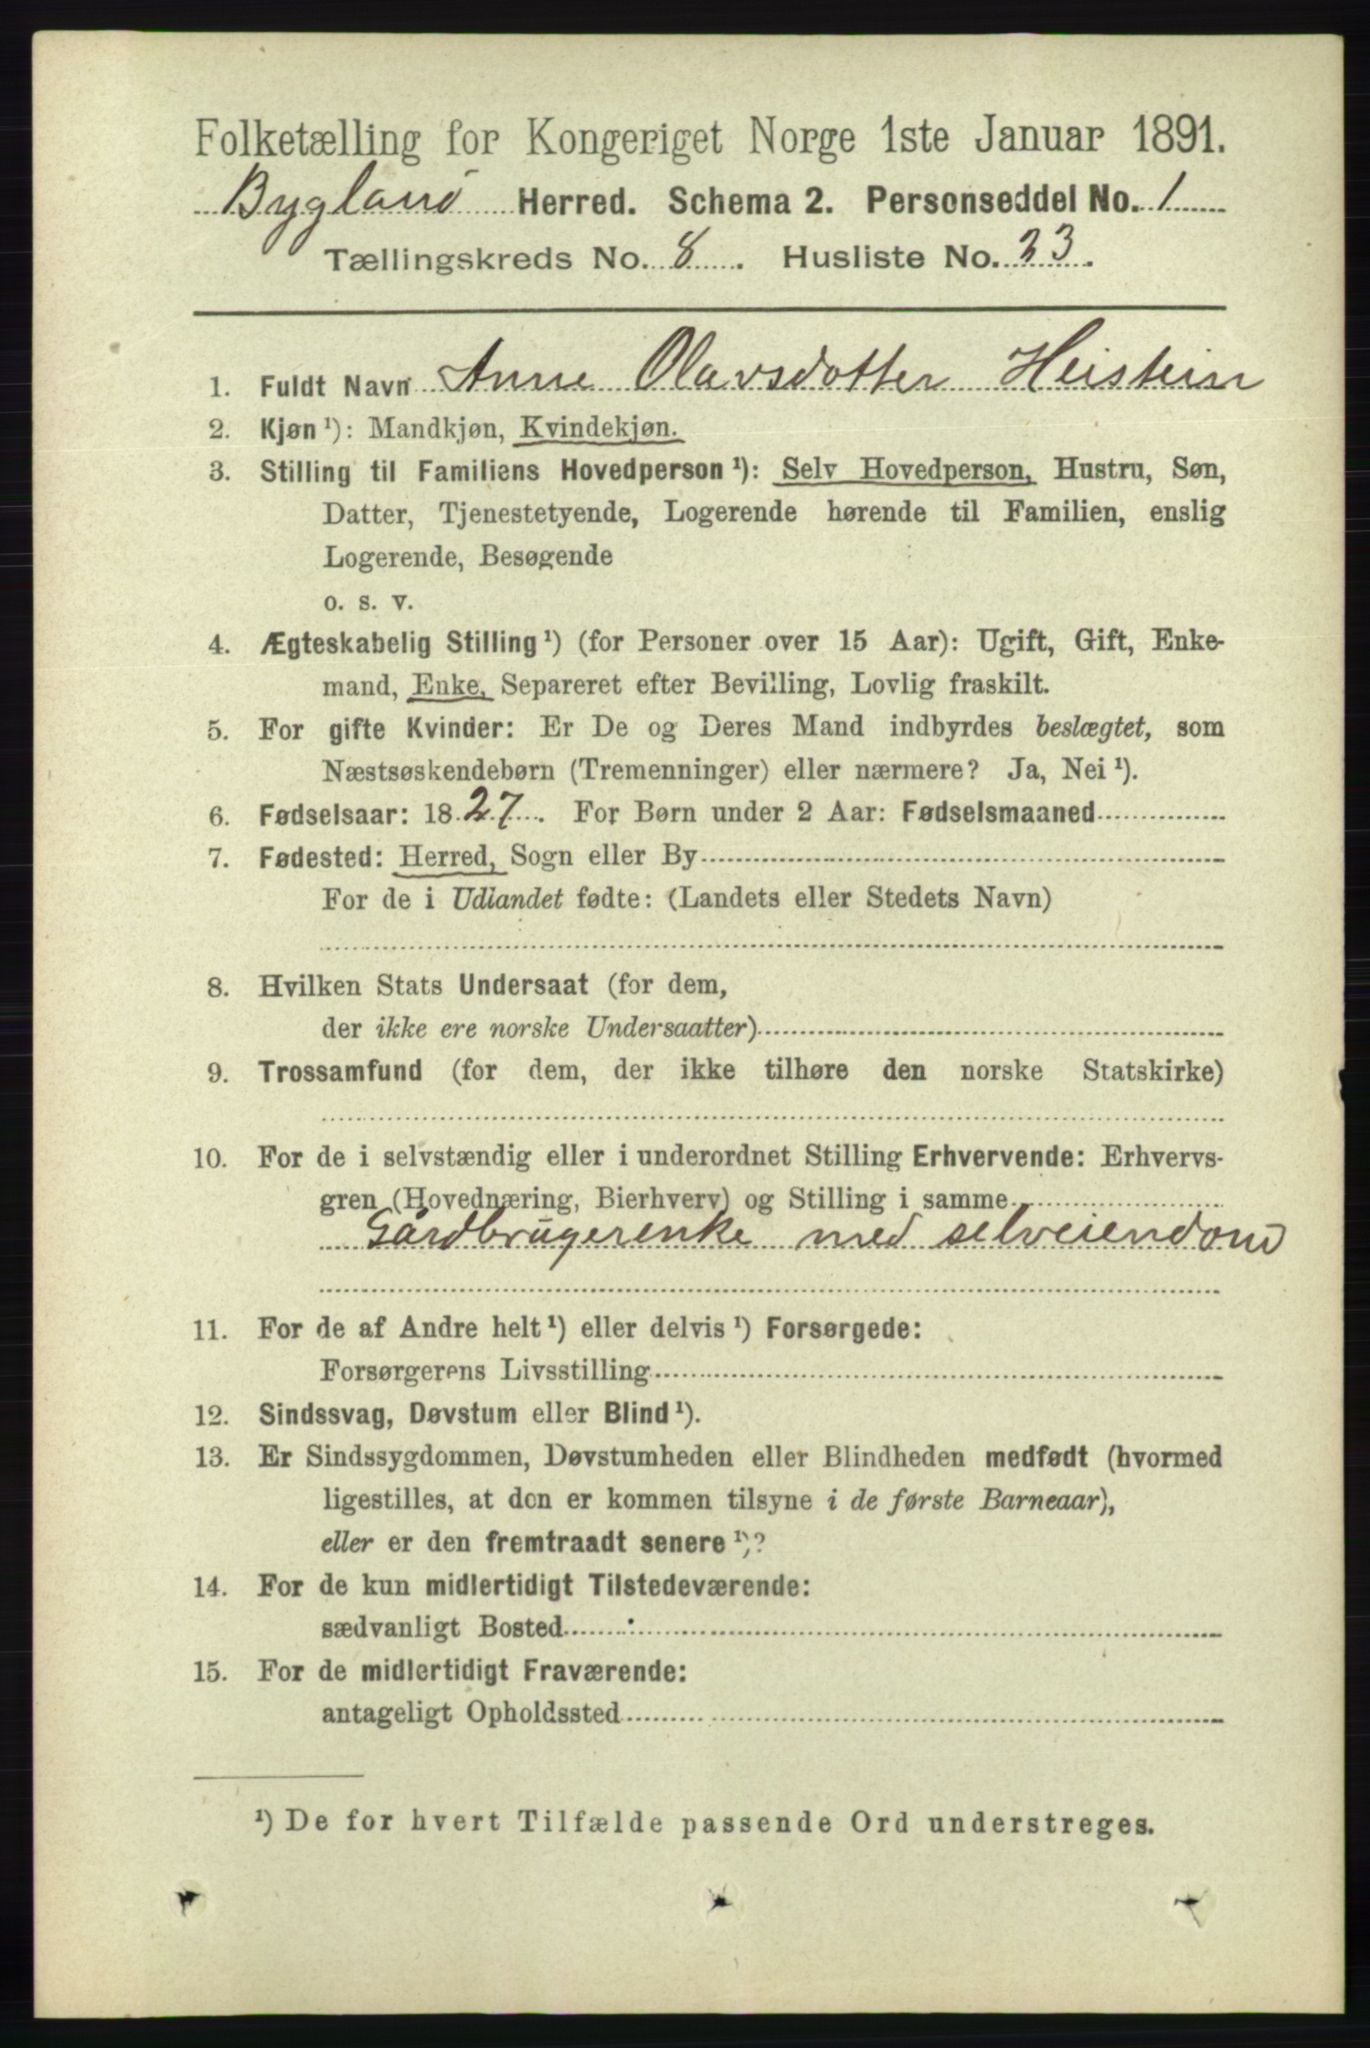 Folketælling for Kongeriget Norge 1ste Januar 1891.
Bygland Herred. Schema 2. Personseddel No. 1
Tællingskreds No. 8. Husliste No. 23.
1. Fuldt Navn Anne Olavsdotter Heistein
2. Kjøn¹): Mandkjøn, Kvindekjøn.
3. Stilling til Familiens Hovedperson¹): Selv Hovedperson, Hustru, Søn,
Datter, Tjenestetyende, Logerende hørende til Familien, enslig
Logerende, Besøgende
o. s. v.
4. Ægteskabelig Stilling¹) (for Personer over 15 Aar): Ugift, Gift, Enke-
mand, Enke, Separeret efter Bevilling, Lovlig fraskilt.
5. For gifte Kvinder: Er De og Deres Mand indbyrdes beslægtet, som
Næstsøskendebørn (Tremenninger) eller nærmere? Ja, Nei¹).
6. Fødselsaar: 1827. For Børn under 2 Aar: Fødselsmaaned
7. Fødested: Herred, Sogn eller By
For de i Udlandet fødte: (Landets eller Stedets Navn)
8. Hvilken Stats Undersaat (for dem,
der ikke ere norske Undersaatter)
9. Trossamfund (for dem, der ikke tilhøre den norske Statskirke)
10. For de i selvstændig eller i underordnet Stilling Erhvervende: Erhvervs-
gren (Hovednæring, Bierhverv) og Stilling i samme
Gårdbrugerenke med selveiendom
11. For de af Andre helt¹) eller delvis¹) Forsørgede:
Forsørgerens Livsstilling
12. Sindssvag, Døvstum eller Blind¹).
13. Er Sindssygdommen, Døvstumheden eller Blindheden medfødt (hvormed
ligestilles, at den er kommen tilsyne i de første Barneaar),
eller er den fremtraadt senere¹)?
14. For de kun midlertidigt Tilstedeværende:
sædvanligt Bosted
15. For de midlertidigt Fraværende:
antageligt Opholdssted
¹) De for hvert Tilfælde passende Ord understreges.